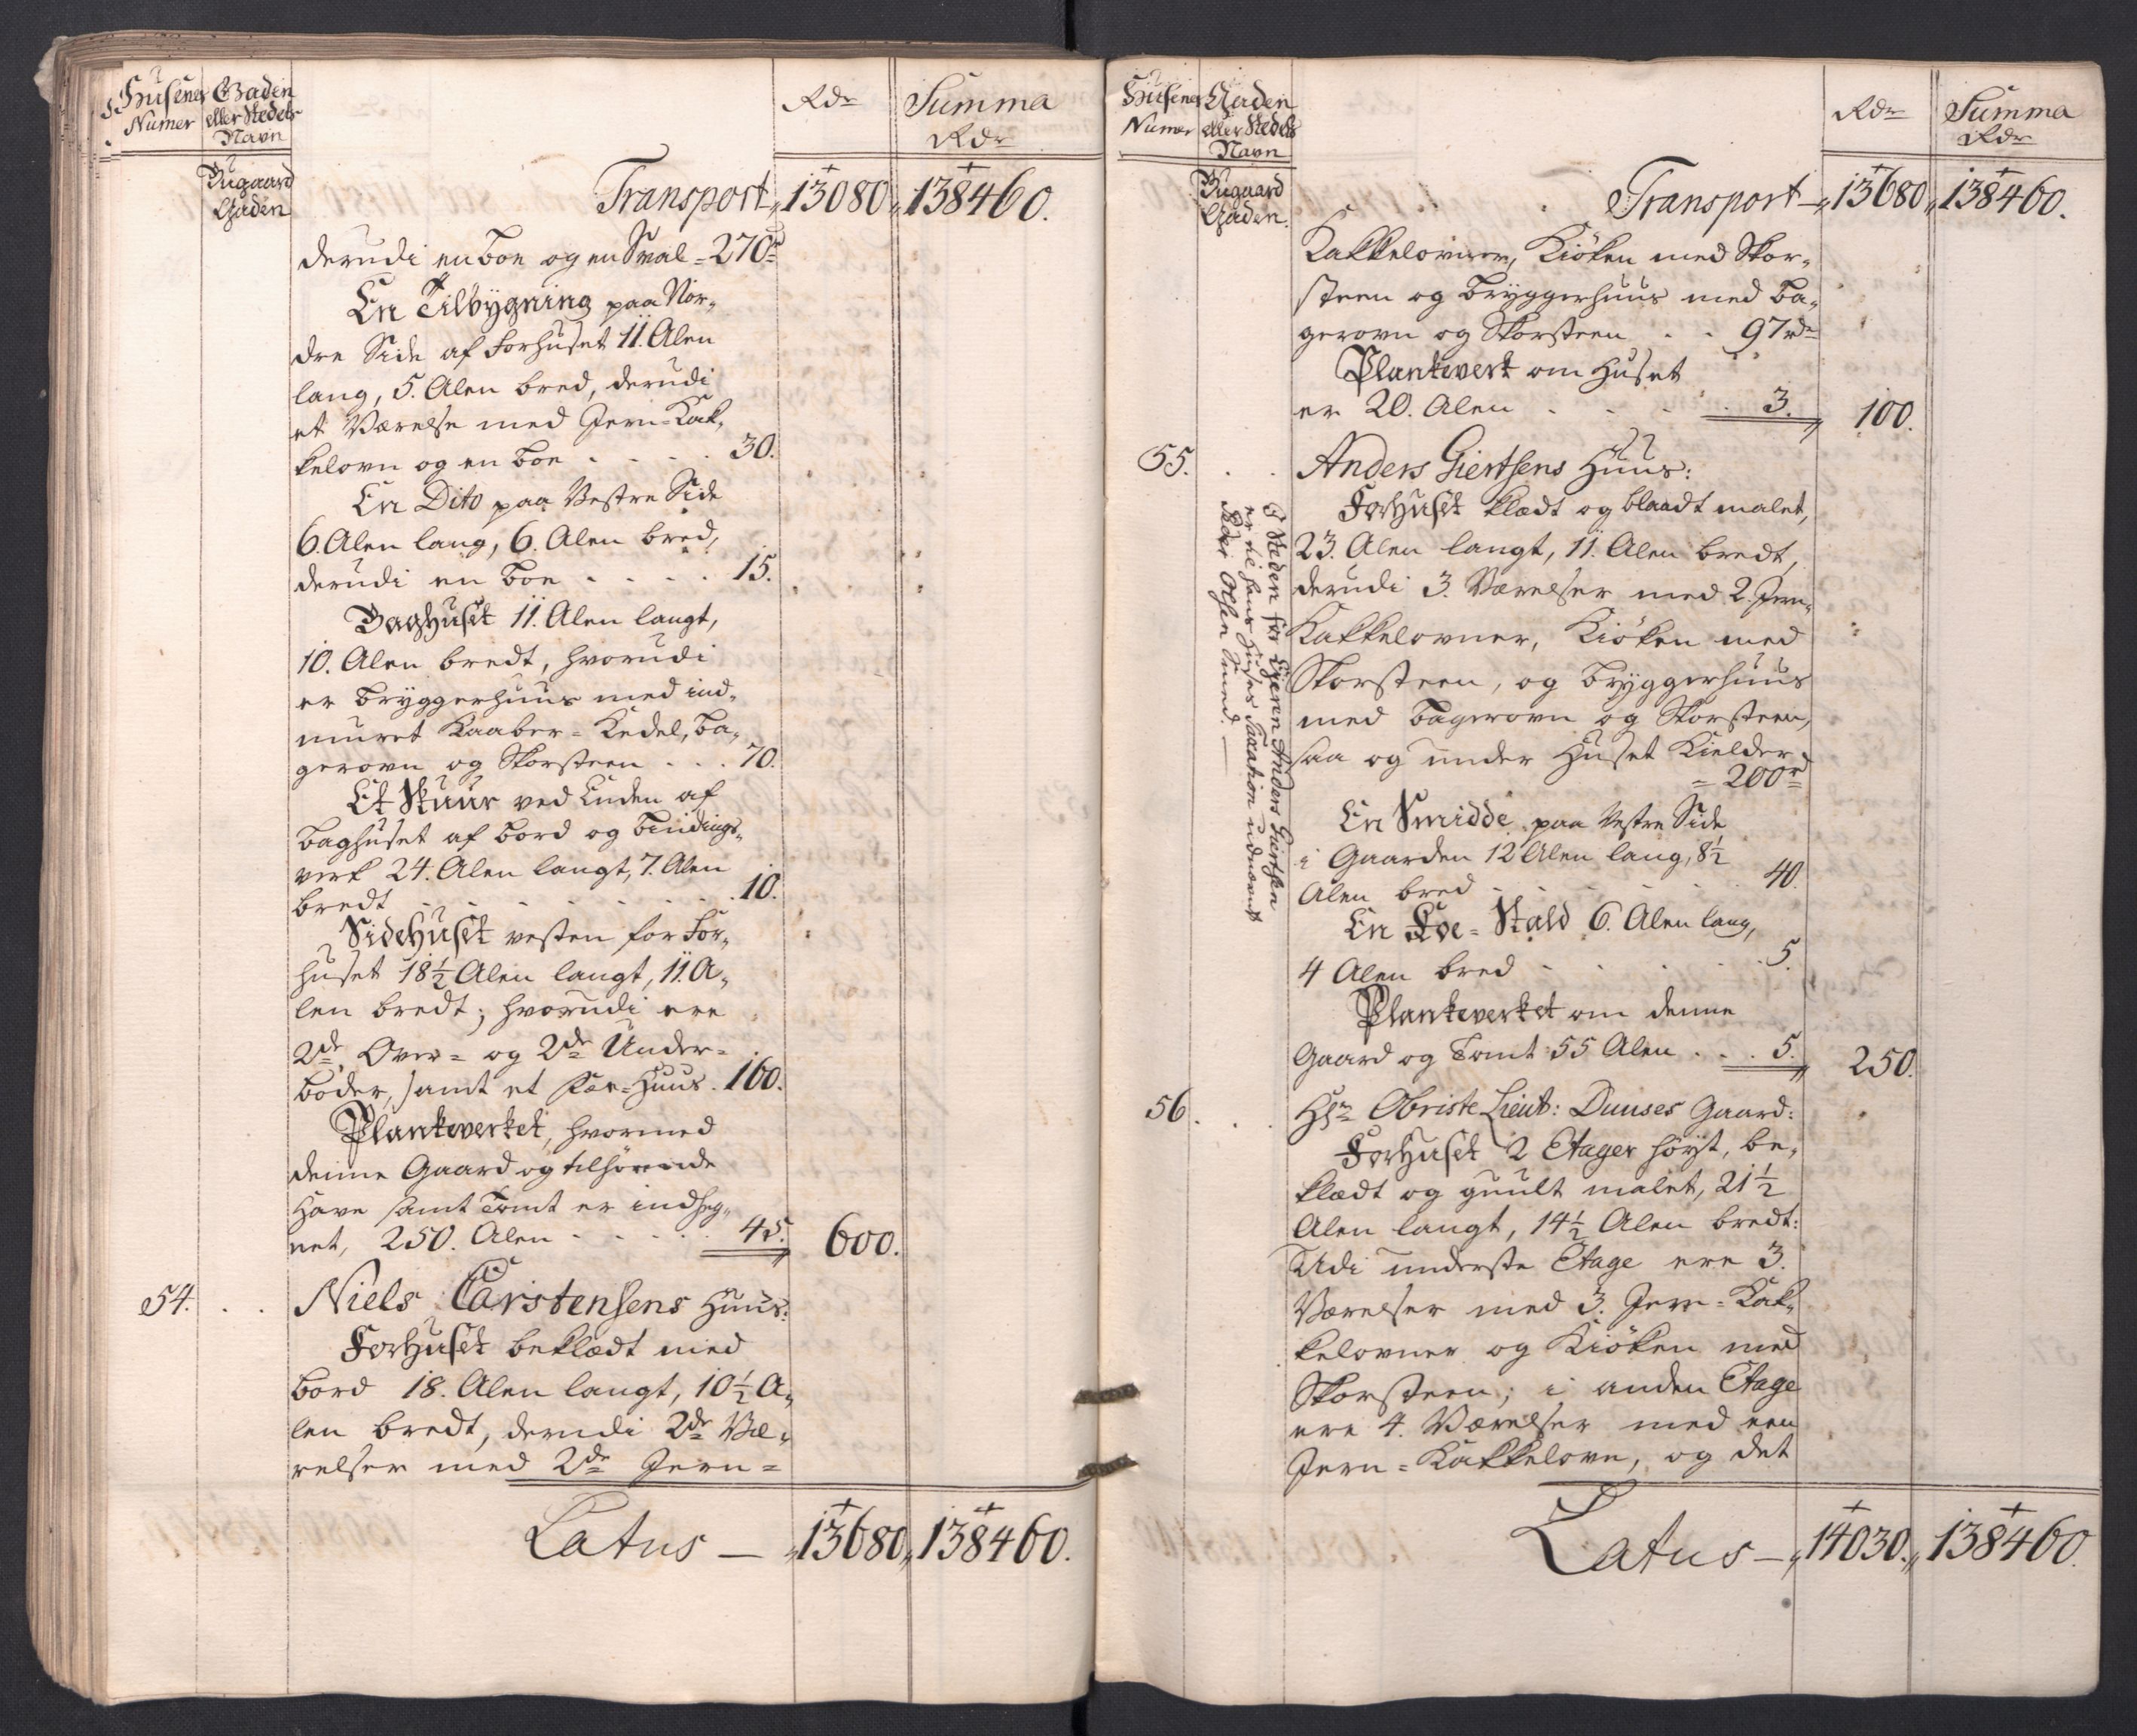 Husenes Numer
Gaden eller Stedets Navn
Rdr
Summa Rdr
Bugaard Gaden
Transport 13080 138460.
derudi en Boe og en Sval = 270r
En Tilbygning paa Nor-
dre Side af Forhuset 11. Alen
lang, 5. Alen bred, derudi
et Værelse med Jern-Kak-
kelovn og en Boe . . . . 30.
En Dito paa Vestre Side
6. Alen lang, 6. Alen bred,
derudi en Boe . . . . 15.
Baghuset 11. Alen langt,
10. Alen bredt, hvorudi
er Bryggerhuus med ind-
muret Kaaber-Kedel, Ba-
gerovn og Skorsteen . . . 70.
Et Skuur ved Enden af
Baghuset af Bord og Bindings-
verk 24. Alen langt, 7. Alen
bredt . . . . . . . 10.
SideHuset vesten for For-
huset 18½ Alen langt, 11. A-
len bredt; hvorudi ere
2de Over- og 2de Under-
boder, samt et Fæe-Huus . 160.
Plankeverket, hvormed
denne Gaard og tilhørende
Have samt Tomt er indheg-
net, 250. Alen . . . . . 45. 600.
54. . . Niels Carstensens Huus:
Forhuset beklædt med
Bord 18. Alen langt, 10½ A-
len bredt, derudi 2de Væ-
relser med 2de Jern-
Latus — 13680 138460.
Husenes Numer
Gaden eller Stedets Navn
Rdr
Summa Rdr
Bugaard Gaden.
Transport — 13680 138460.
Kakkelovner, Kiöken med Skor-
steen og Bryggerhuus med Ba-
gerovn og Skorsteen . . 97rdr
Plankeverk om Huset
er 20. Alen . . . . 3. 100.
55. . . Anders Giertsens Huus:
I Steden for Eyeren Anders Giertsen
er til hans Huses Taxation udnævnt
Peder Olsen Smed. —
Forhuset klædt og blaadt malet,
23. Alen langt, 11. Alen bredt,
derudi 3. Værelser med 2. Jern-
Kakkelovner, Kiöken med
Skorsteen, og Bryggerhuus
med Bagerovn og Skorsteen,
saa og under Huset Kielder
= 200rd
En Smidde paa Vestre Side
i Gaarden 12 Alen lang, 8½
Alen bred . . . . . 40.
En Foe-Stald 6. Alen lang,
4 Alen bred . . . . . 5.
Plankeverket om denne
Gaard og Tomt 55 Alen . . . 5. 250.
56. . . Hr Obriste Lieut: Duuses Gaard:
Forhuset 2 Etager höyt, be-
klædt og guult malet, 21½
Alen langt, 14½ Alen bredt:
Udi underste Etage ere 3.
Værelser med 3. Jern-Kak-
kelovner og Kiöken med
Skorsteen; i anden Etage
ere 4. Værelser med een
Jern-Kakkelovn, og det
Latus — 14030. 138460.